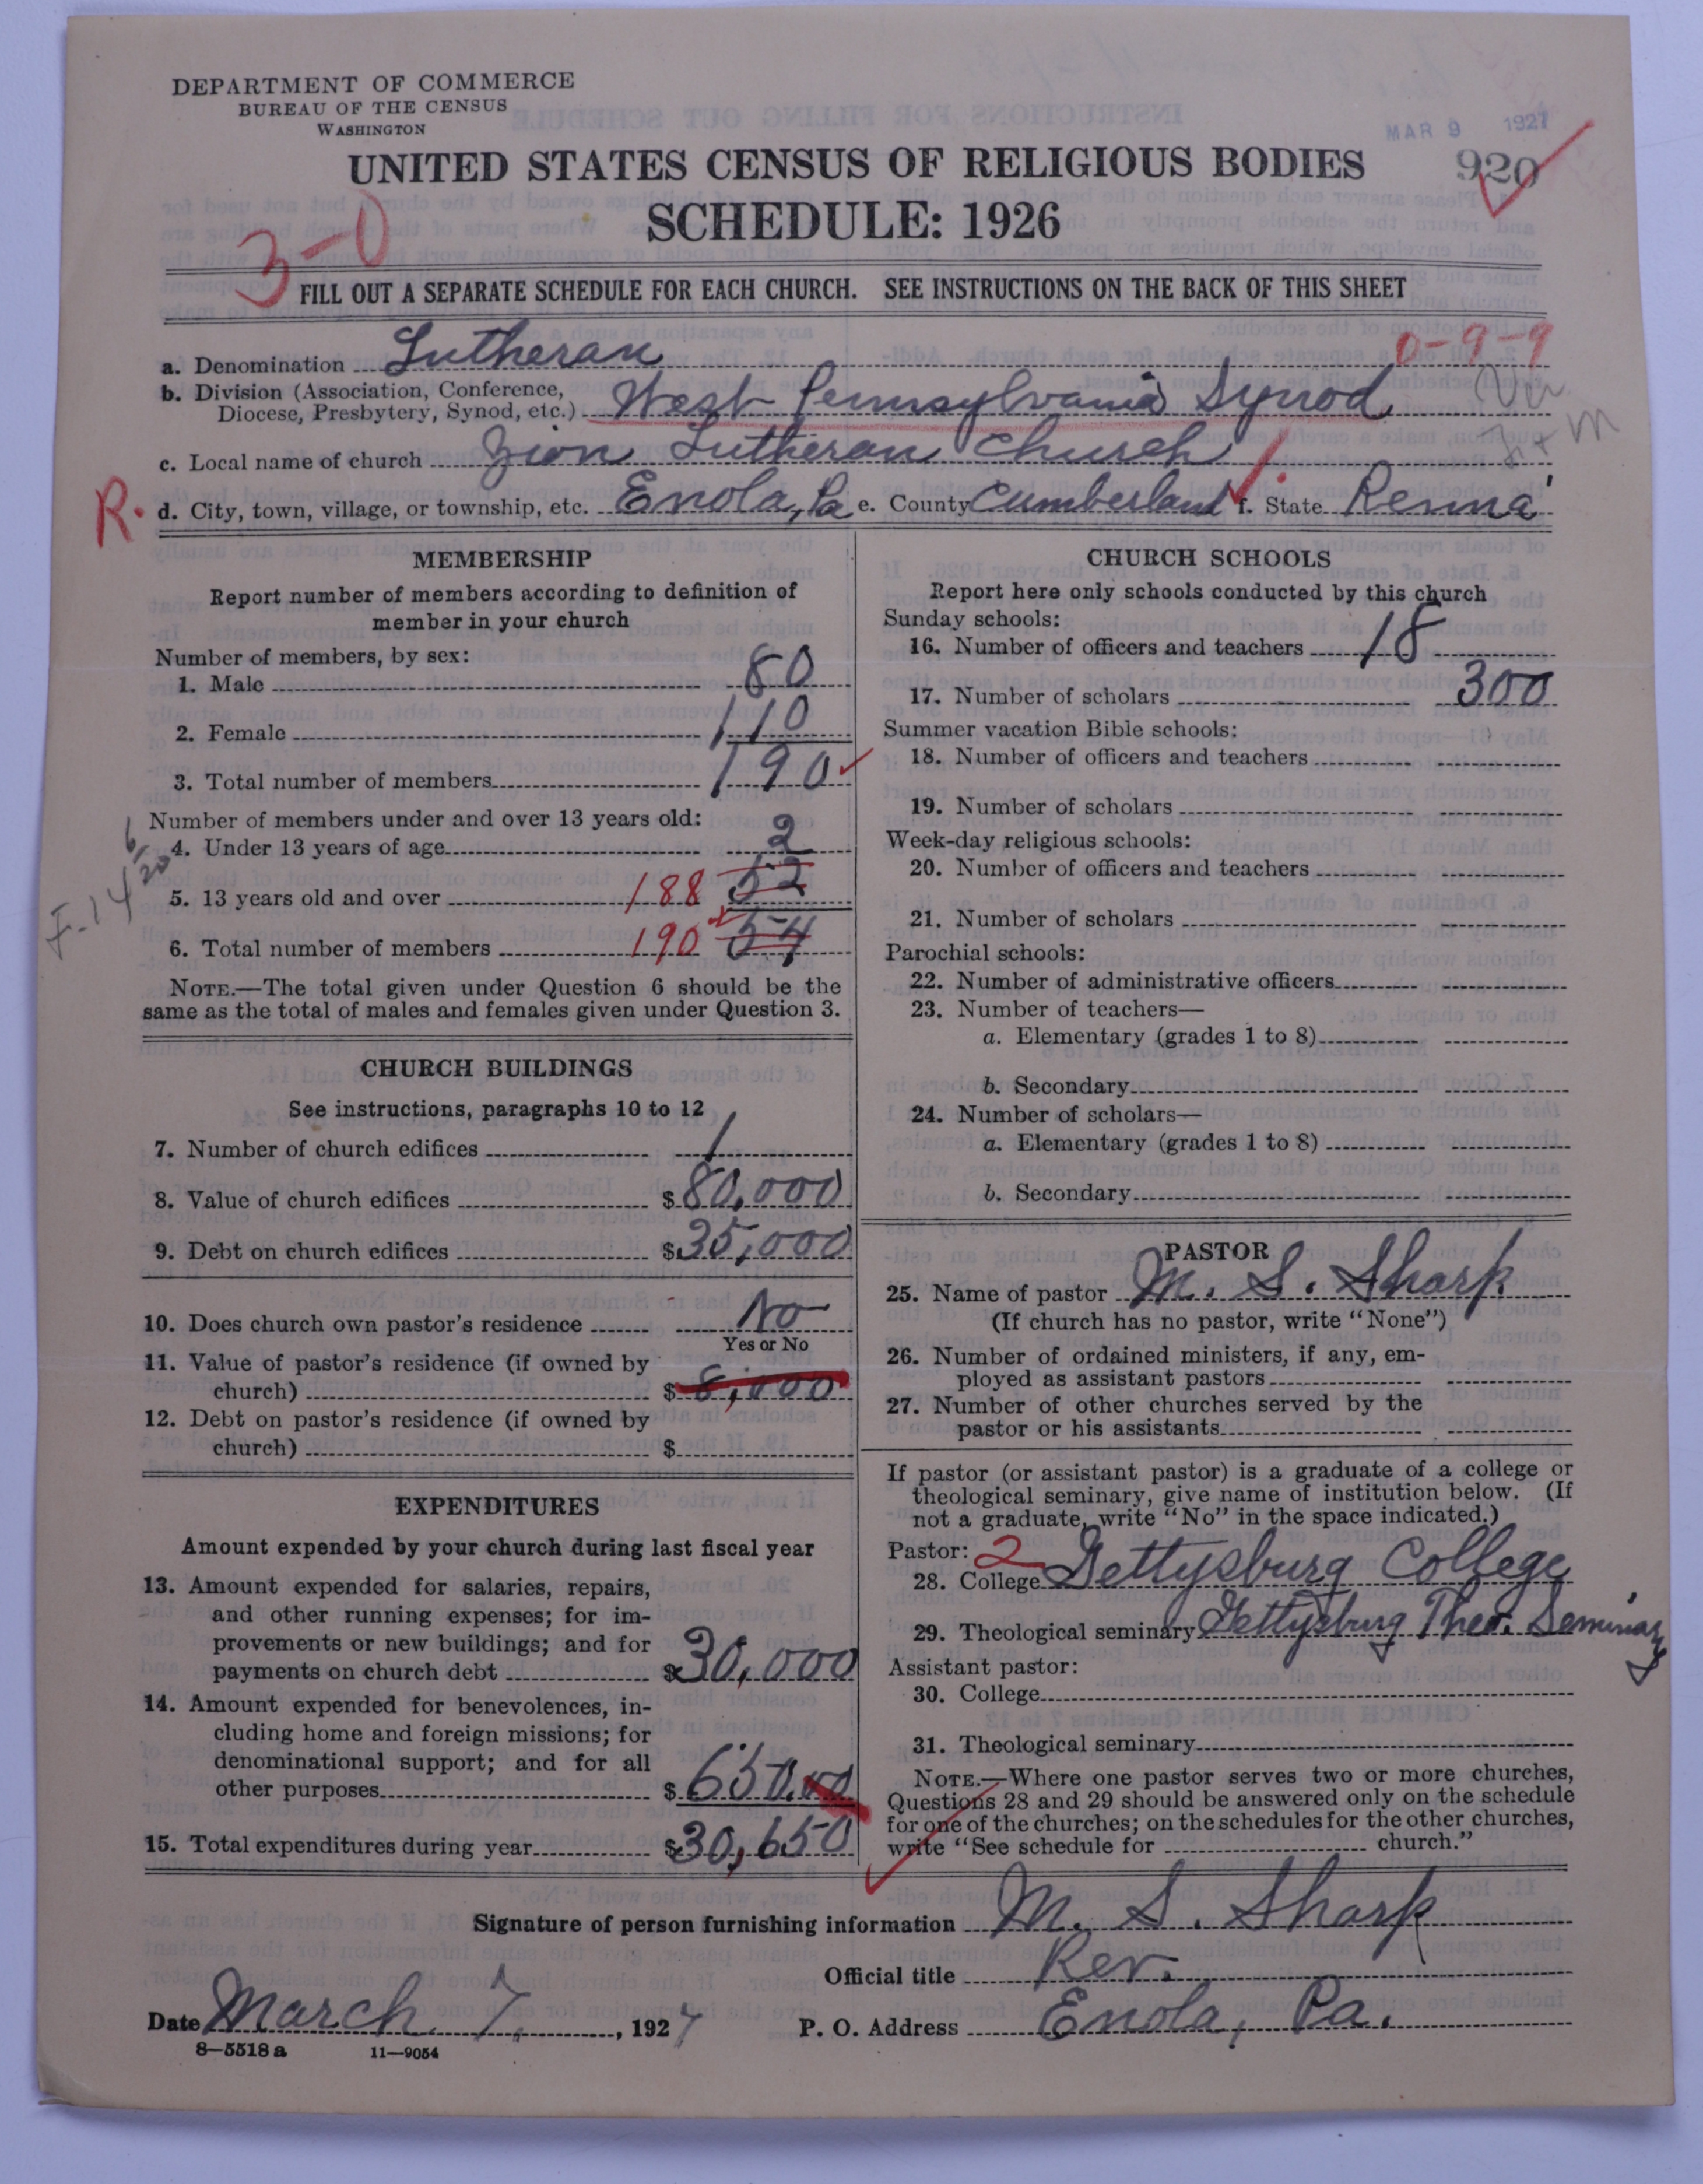 DEPARTMENT OF COMMERCE
BUREAU OF THE CENSUS
WASHINGTON
MAR 9 1927
UNITED STATES CENSUS OF RELIGIOUS BODIES
920
SCHEDULE: 1926
3-0
FILL OUT A SEPARATE SCHEDULE FOR EACH CHURCH. SEE INSTRUCTIONS ON THE BACK OF THIS SHEET
0-9-9
a. Denomination Lutheran
b. Division (Association, Conference,
Diocese, Presbytery, Synod, etc.) West Pennsylvania Synod
c. Local name of church Zion Lutheran Church
R. d. City, town, village, or township, etc. Enola, Pa e. County Cumberland f. State Penna
MEMBERSHIP
Report number of members according to definition of
member in your church
Number of members, by sex:
1. Male 80
2. Female 110
3. Total number of members 190
Number of members under and over 13 years old:
4. Under 13 years of age 2
5. 13 years old and over 188 52
6. Total number of members 190 54
F-14
NOTE.—The total given under Question 6 should be the
same as the total of males and females given under Question 3.
CHURCH BUILDINGS
See instructions, paragraphs 10 to 12
7. Number of church edifices 1
8. Value of church edifices $80,000
9. Debt on church edifices $35,000
10. Does church own pastor's residence No
Yes or No
11. Value of pastor's residence (if owned by
church) $8,000
12. Debt on pastor's residence (if owned by
church) $
EXPENDITURES
Amount expended by your church during last fiscal year
13. Amount expended for salaries, repairs,
and other running expenses; for im-
provements or new buildings; and for
payments on church debt $30,000
14. Amount expended for benevolences, in-
cluding home and foreign missions; for
denominational support; and for all
other purposes $650.00
15. Total expenditures during year $30,650
CHURCH SCHOOLS
Report here only schools conducted by this church
Sunday schools:
16. Number of officers and teachers 18
17. Number of scholars 300
Summer vacation Bible schools:
18. Number of officers and teachers
19. Number of scholars
Week-day religious schools:
20. Number of officers and teachers
21. Number of scholars
Parochial schools:
22. Number of administrative officers
23. Number of teachers—
a. Elementary (grades 1 to 8)
b. Secondary
24. Number of scholars—
a. Elementary (grades 1 to 8)
b. Secondary
PASTOR
25. Name of pastor M. S. Sharp
(If church has no pastor, write "None")
26. Number of ordained ministers, if any, em-
ployed as assistant pastors
27. Number of other churches served by the
pastor or his assistants
If pastor (or assistant pastor) is a graduate of a college or
theological seminary, give name of institution below. (If
not a graduate, write "No" in the space indicated.)
Pastor: 2
28. College Gettysburg College
29. Theological seminary Gettysburg Theo. Seminary
Assistant pastor:
30. College
31. Theological seminary
NOTE.—Where one pastor serves two or more churches,
Questions 28 and 29 should be answered only on the schedule
for one of the churches; on the schedules for the other churches,
write "See schedule for church."
Signature of person furnishing information M. S. Sharp
Official title Rev.
Date March 7, 1927 P. O. Address Enola, Pa.
8—5518 a 11—9054